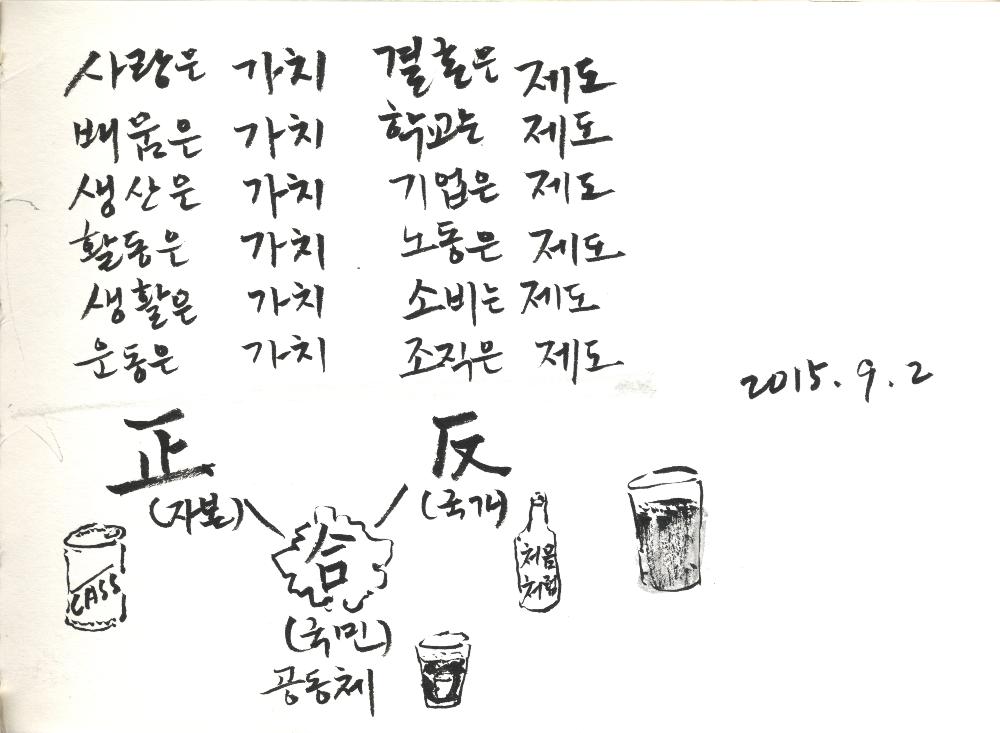 사랑은 가치 결혼은 제도
배움은 가치 학교는 제도
생산은 가치 기업은 제도
활동은 가치 노동은 제도
생활은 가치 소비는 제도
운동은 가치 조직은 제도
2015. 9. 2
正 反
(자본) (국개)
合
(국민)
공동체
CASS
처음
처럼